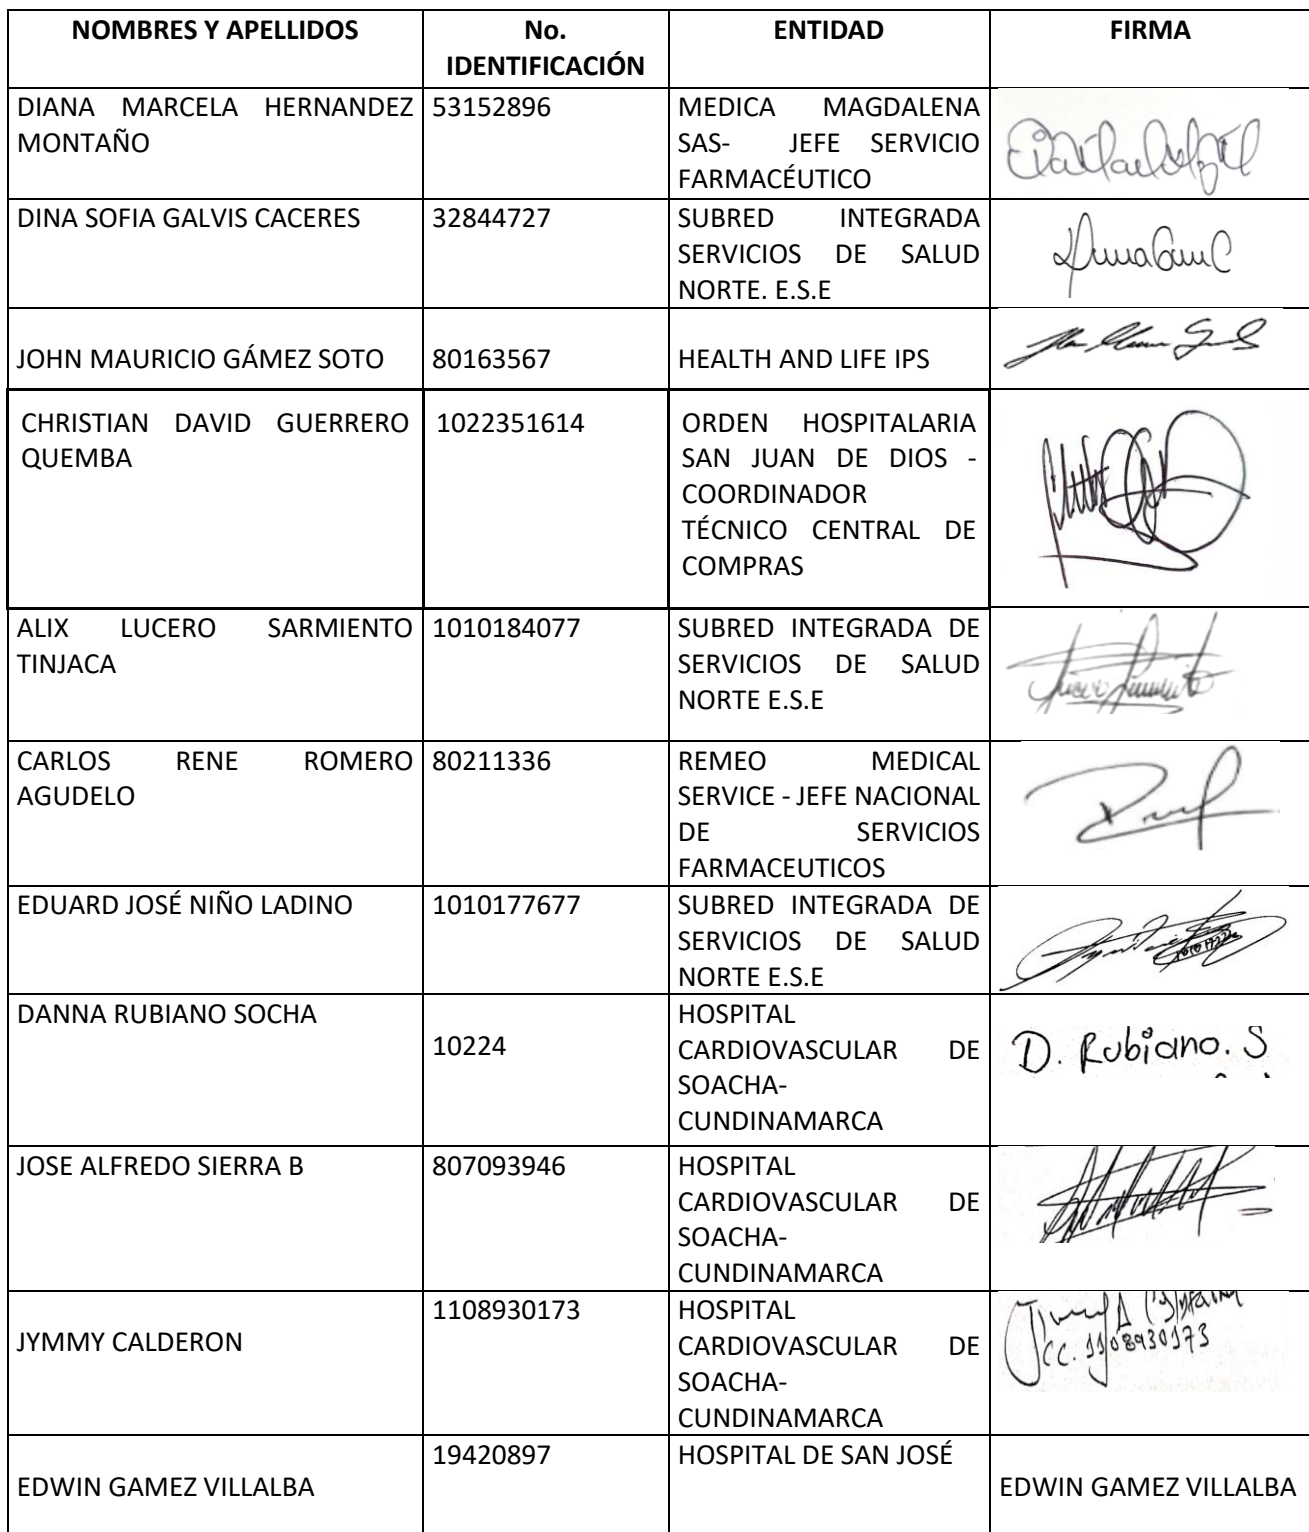 NOMBRES Y APELLIDOS
No.
IDENTIFICACIÓN
ENTIDAD
FIRMA
DIANA MARCELA HERNANDEZ
MONTAÑO
53152896
MEDICA MAGDALENA
SAS- JEFE SERVICIO
FARMACÉUTICO
DINA SOFIA GALVIS CACERES
32844727
SUBRED INTEGRADA
SERVICIOS DE SALUD
NORTE. E.S.E
JOHN MAURICIO GÁMEZ SOTO
80163567
HEALTH AND LIFE IPS
CHRISTIAN DAVID GUERRERO
QUEMBA
1022351614
ORDEN HOSPITALARIA
SAN JUAN DE DIOS -
COORDINADOR
TÉCNICO CENTRAL DE
COMPRAS
ALIX LUCERO SARMIENTO
TINJACA
1010184077
SUBRED INTEGRADA DE
SERVICIOS DE SALUD
NORTE E.S.E
CARLOS RENE ROMERO
AGUDELO
80211336
REMEO MEDICAL
SERVICE - JEFE NACIONAL
DE SERVICIOS
FARMACEUTICOS
EDUARD JOSÉ NIÑO LADINO
1010177677
SUBRED INTEGRADA DE
SERVICIOS DE SALUD
NORTE E.S.E
DANNA RUBIANO SOCHA
10224
HOSPITAL
CARDIOVASCULAR DE
SOACHA-
CUNDINAMARCA
D. Rubiano. S
JOSE ALFREDO SIERRA B
807093946
HOSPITAL
CARDIOVASCULAR DE
SOACHA-
CUNDINAMARCA
JYMMY CALDERON
1108930173
HOSPITAL
CARDIOVASCULAR DE
SOACHA-
CUNDINAMARCA
CC. 1108930173
EDWIN GAMEZ VILLALBA
19420897
HOSPITAL DE SAN JOSÉ
EDWIN GAMEZ VILLALBA